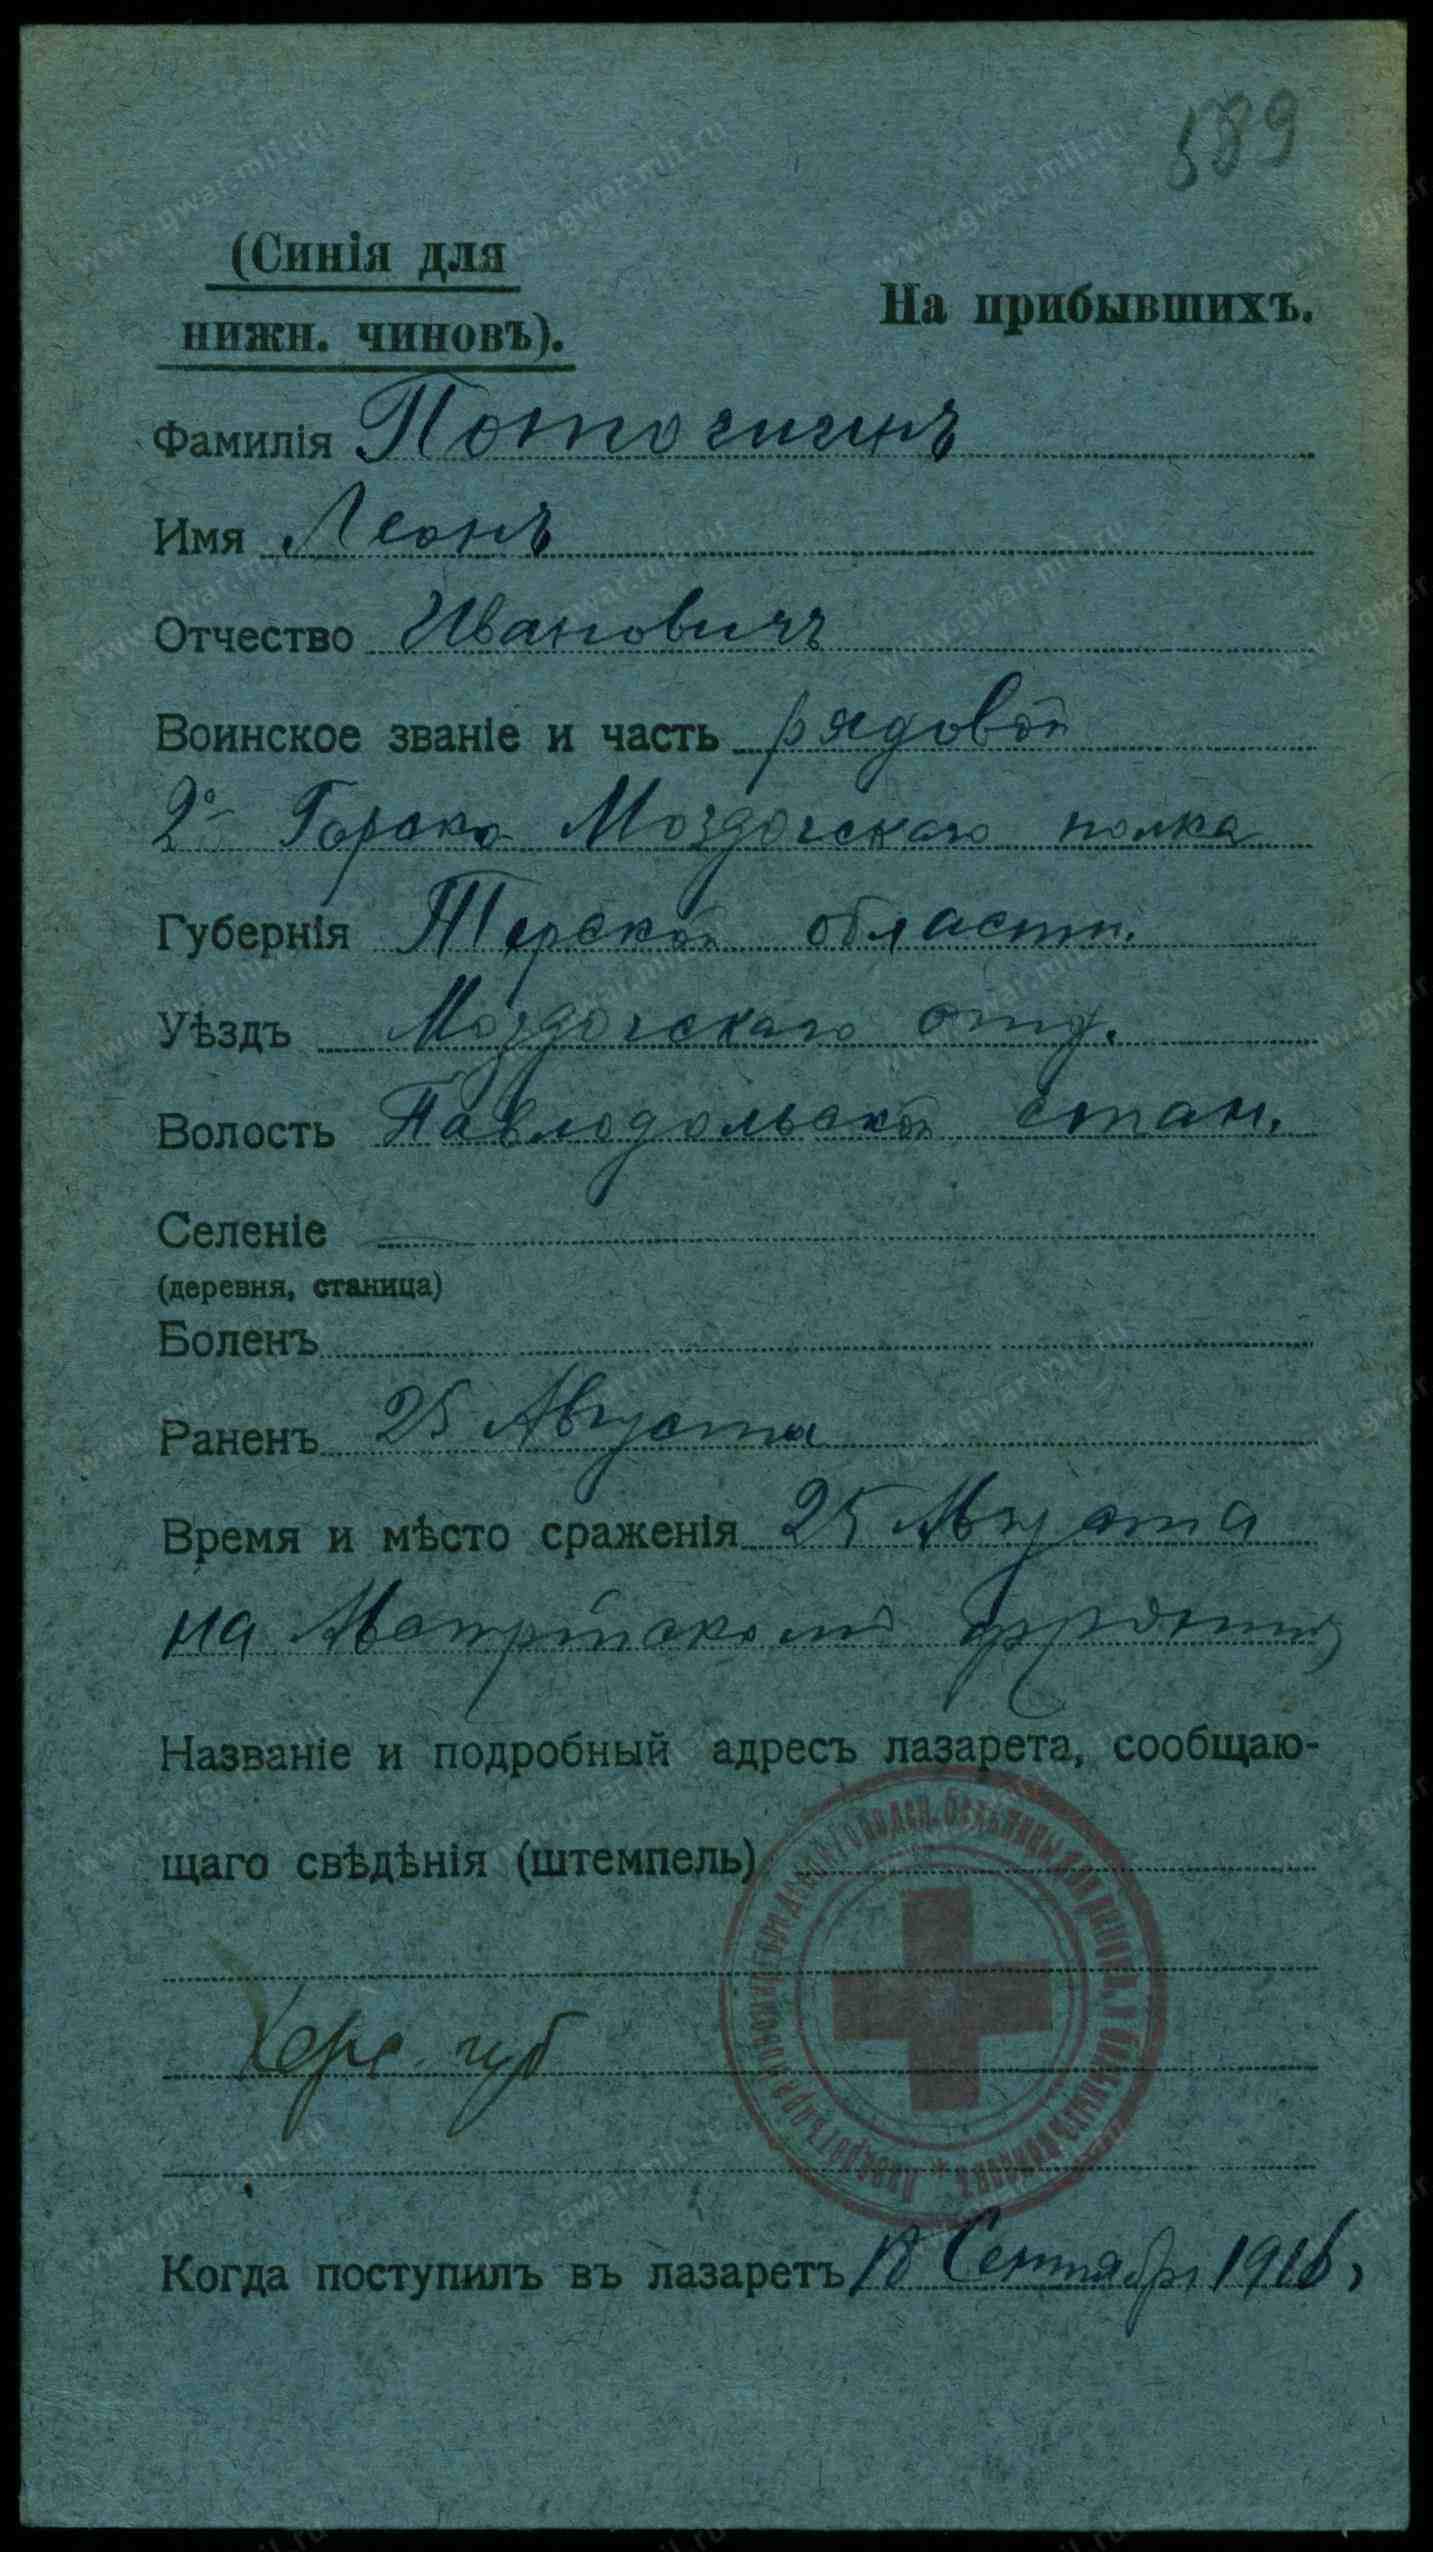 589
(Синія для
На прибывшихъ.
нижн. чиновъ).
Фамилія
Имя Леонъ
Отчество Ивановичъ
Воинское званіе и часть рядовой
2о Горско Моздогскаго полка
Губернія Терской области.
Уѣздъ Моздогскаго отд.
Волость Павлодольской стан.
Селеніе
(деревня, станица)
Боленъ
Раненъ 25 Августа
Время и мѣсто сраженія 25 Августа
на Австрійскомъ фронтѣ
Названіе и подробный адресъ лазарета, сообщаю-
щаго свѣдѣнія (штемпель)
Херс. губ
Когда поступилъ въ лазаретъ 18 Сентября 1916,
www.gwar.mil.ru